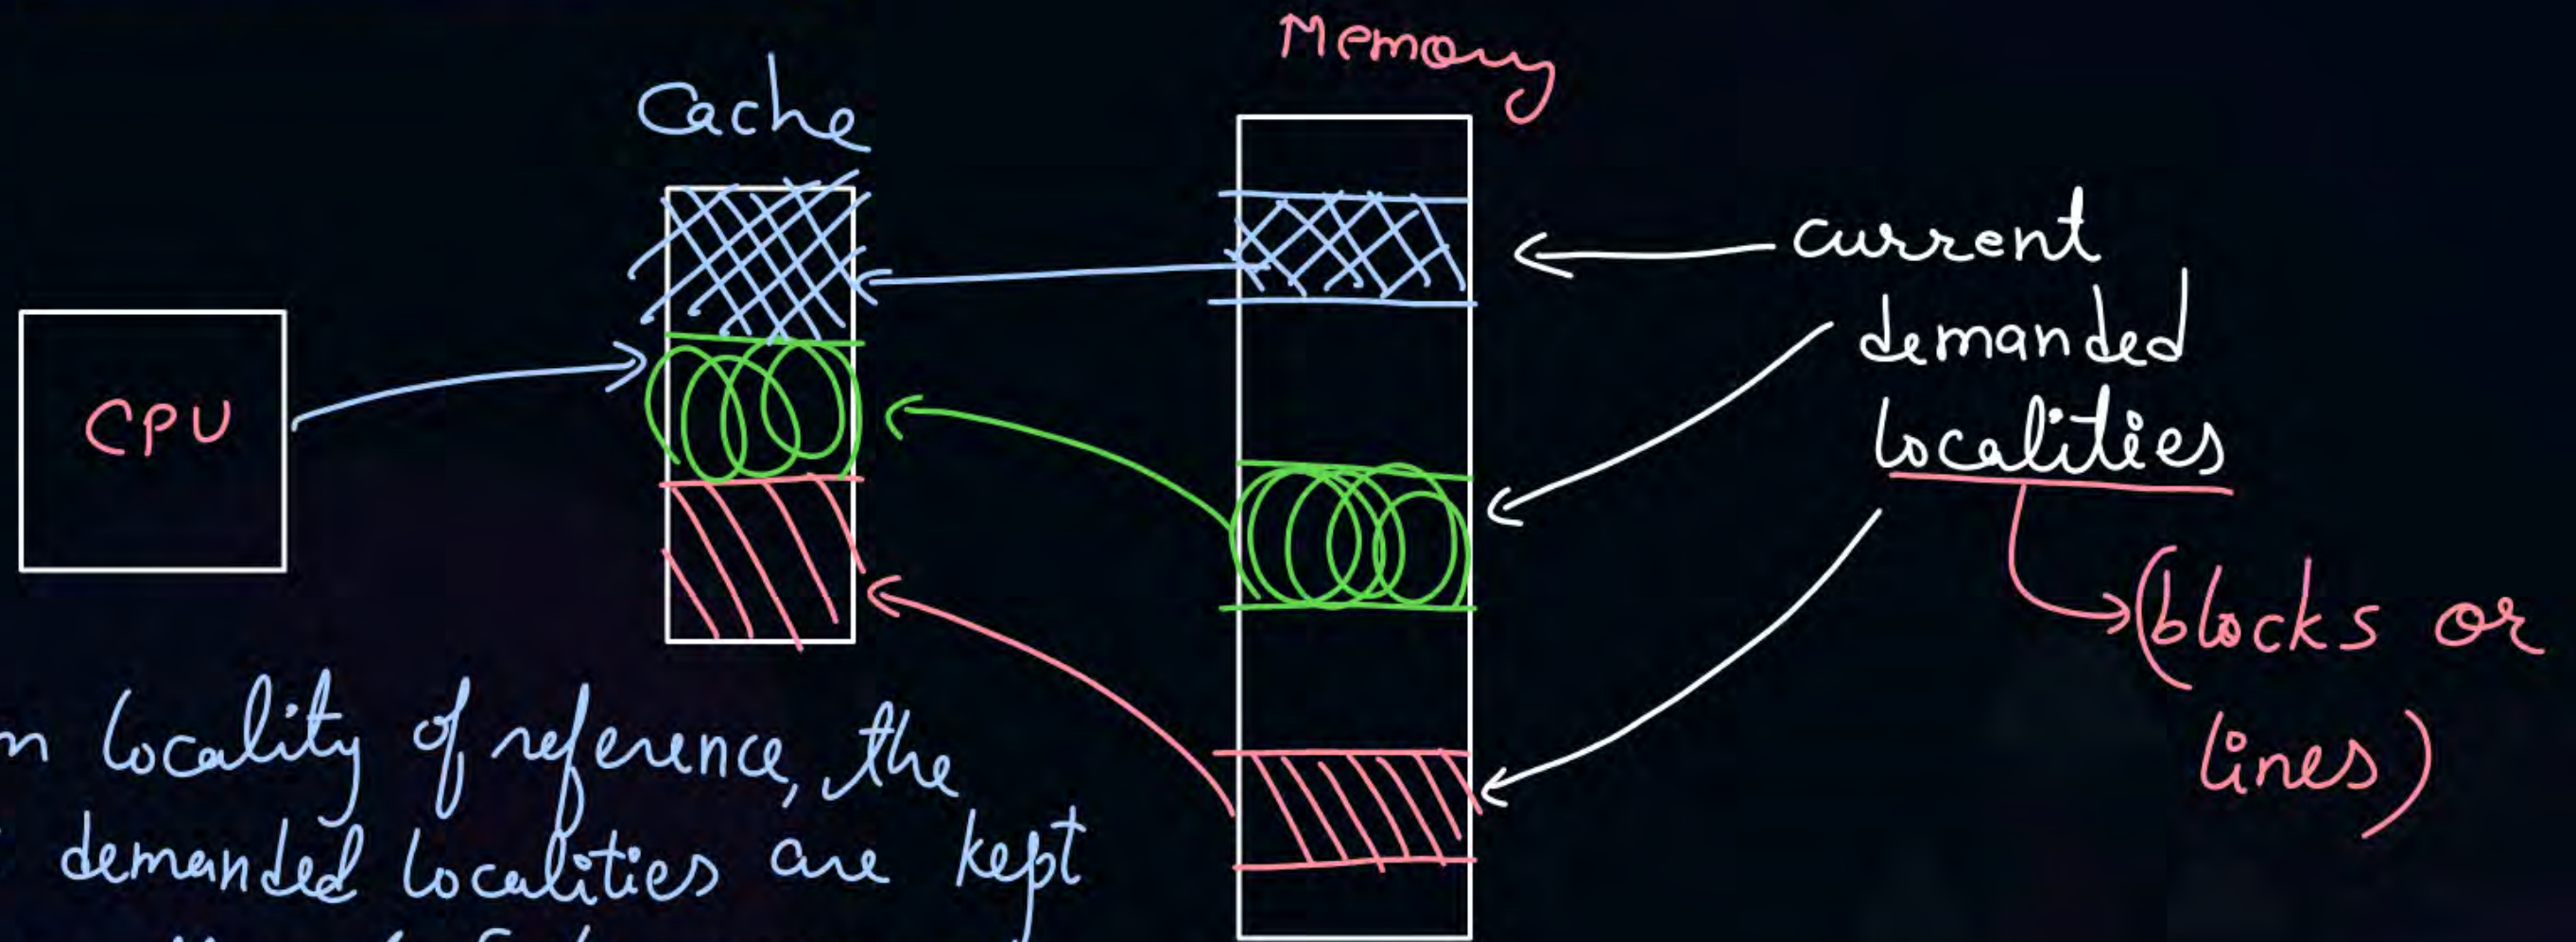 Memory
Cache
CPU
current
demanded
localities
(blocks or
lines)
locality of reference, the
demanded localities are kept